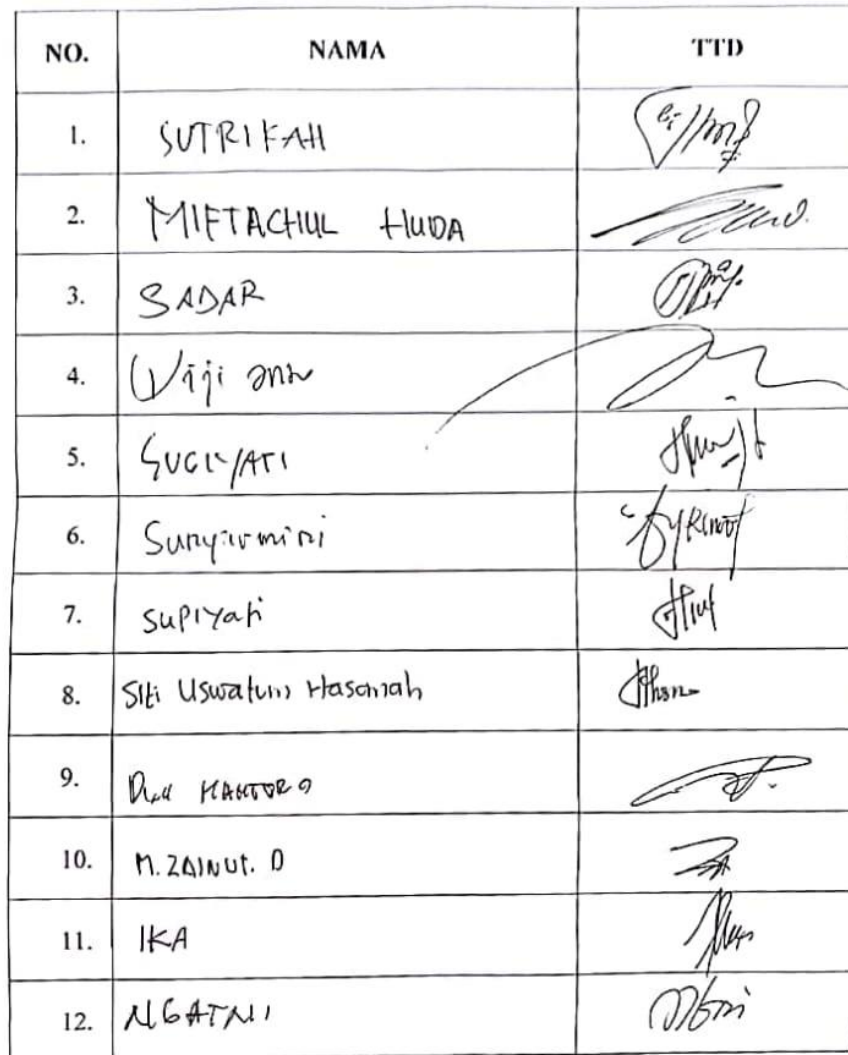 NO. NAMA TTD
1. SUTRIKAH
2. MIFTACHUL HUDA
3. SADAR
4. Wiji
5. SUGIYATI
6. Sunyarmini
7. SUPIYati
8. Siti Uswatun Hasanah
9.
10. M. ZAINUL. D
11. IKA
12. NGATNI